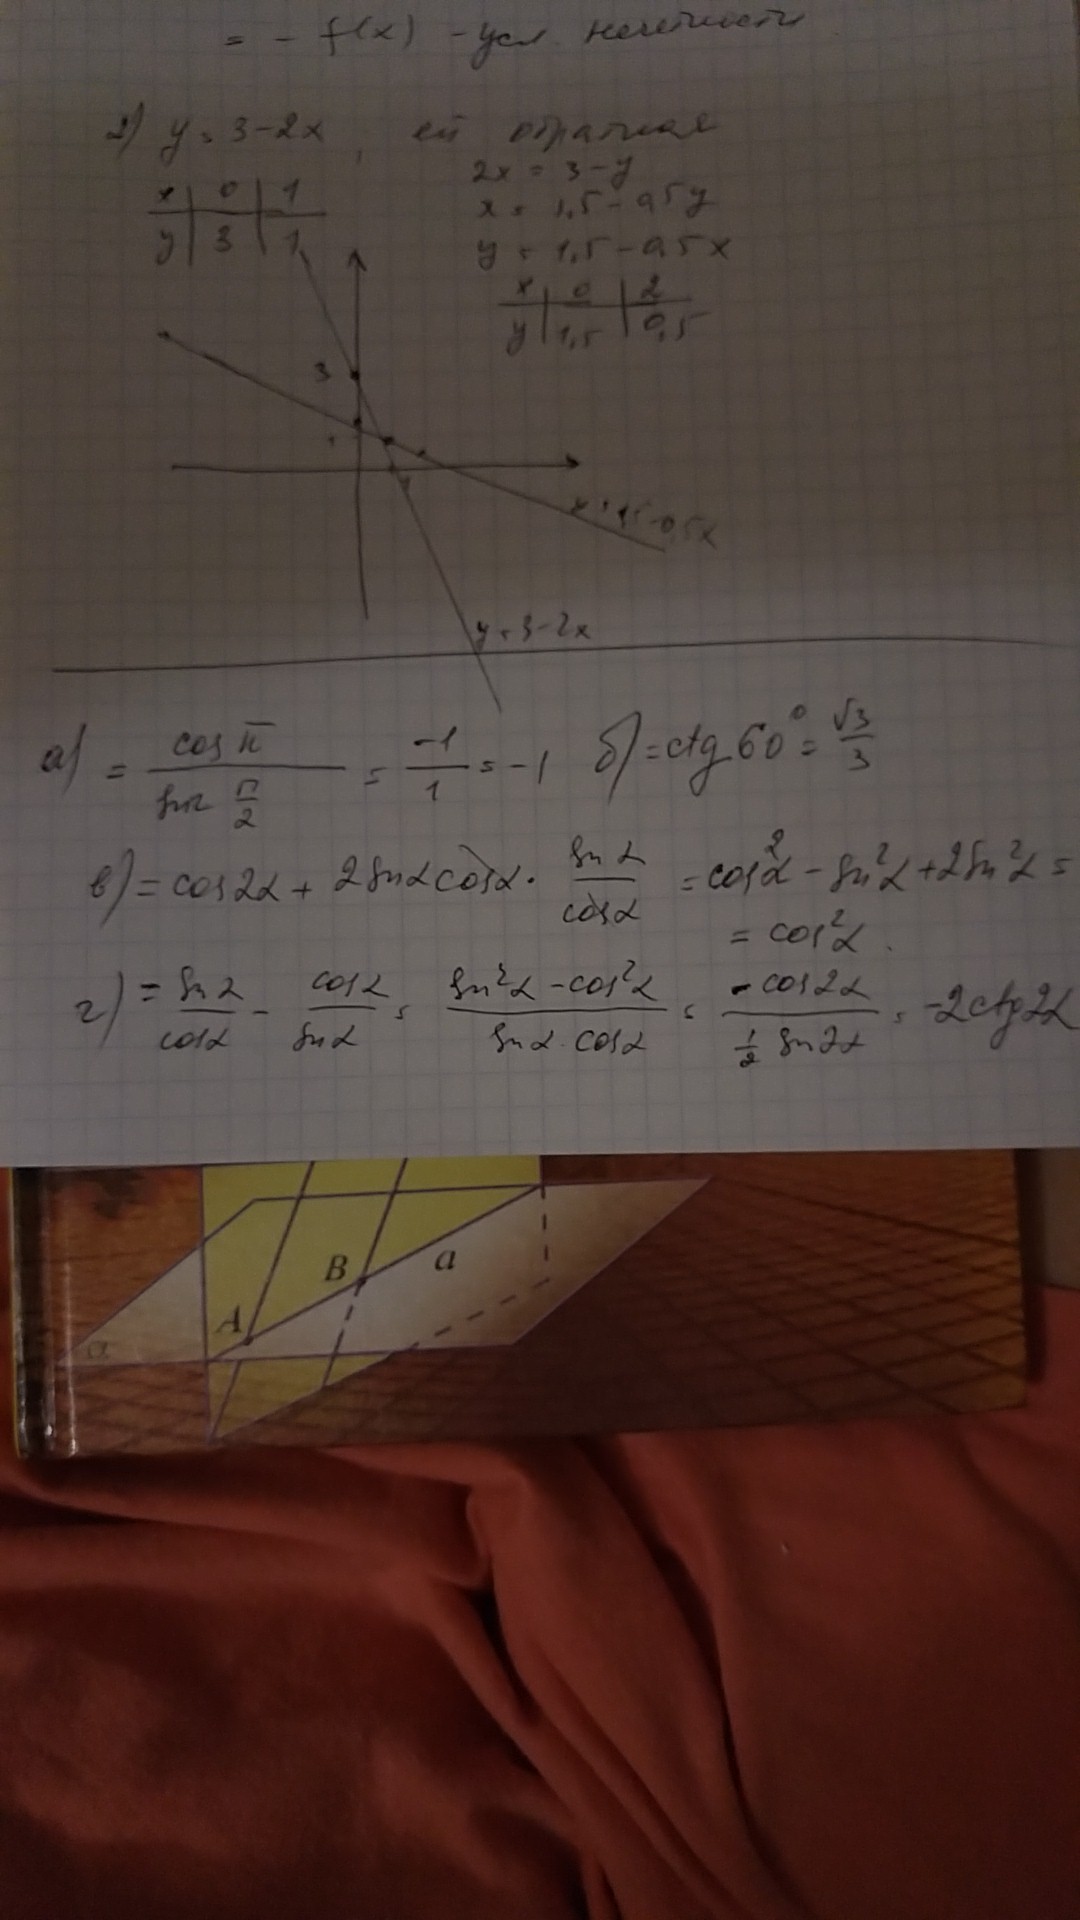 = - f(x) - усл. нечетности
2) y = 3-2x, ей обратная
2x = 3-y
x | 0 | 1
y | 3 | 1
x = 1,5-0,5y
y = 1,5-0,5x
x | 0 | 2
y | 1,5 | 0,5
3
1
1
x = 1,5-0,5x
y = 3-2x
а) = cos π / sin π/2 = -1/1 = -1 б) = ctg 60° = √3/3
в) = cos2α + 2sinα cosα · sinα/cosα = cos²α - sin²α + 2sin²α =
= cos²α.
г) = sinα/cosα - cosα/sinα = sin²α - cos²α / sinα · cosα = -cos2α / ½ sin2α = -2ctg2α
B a
A
α